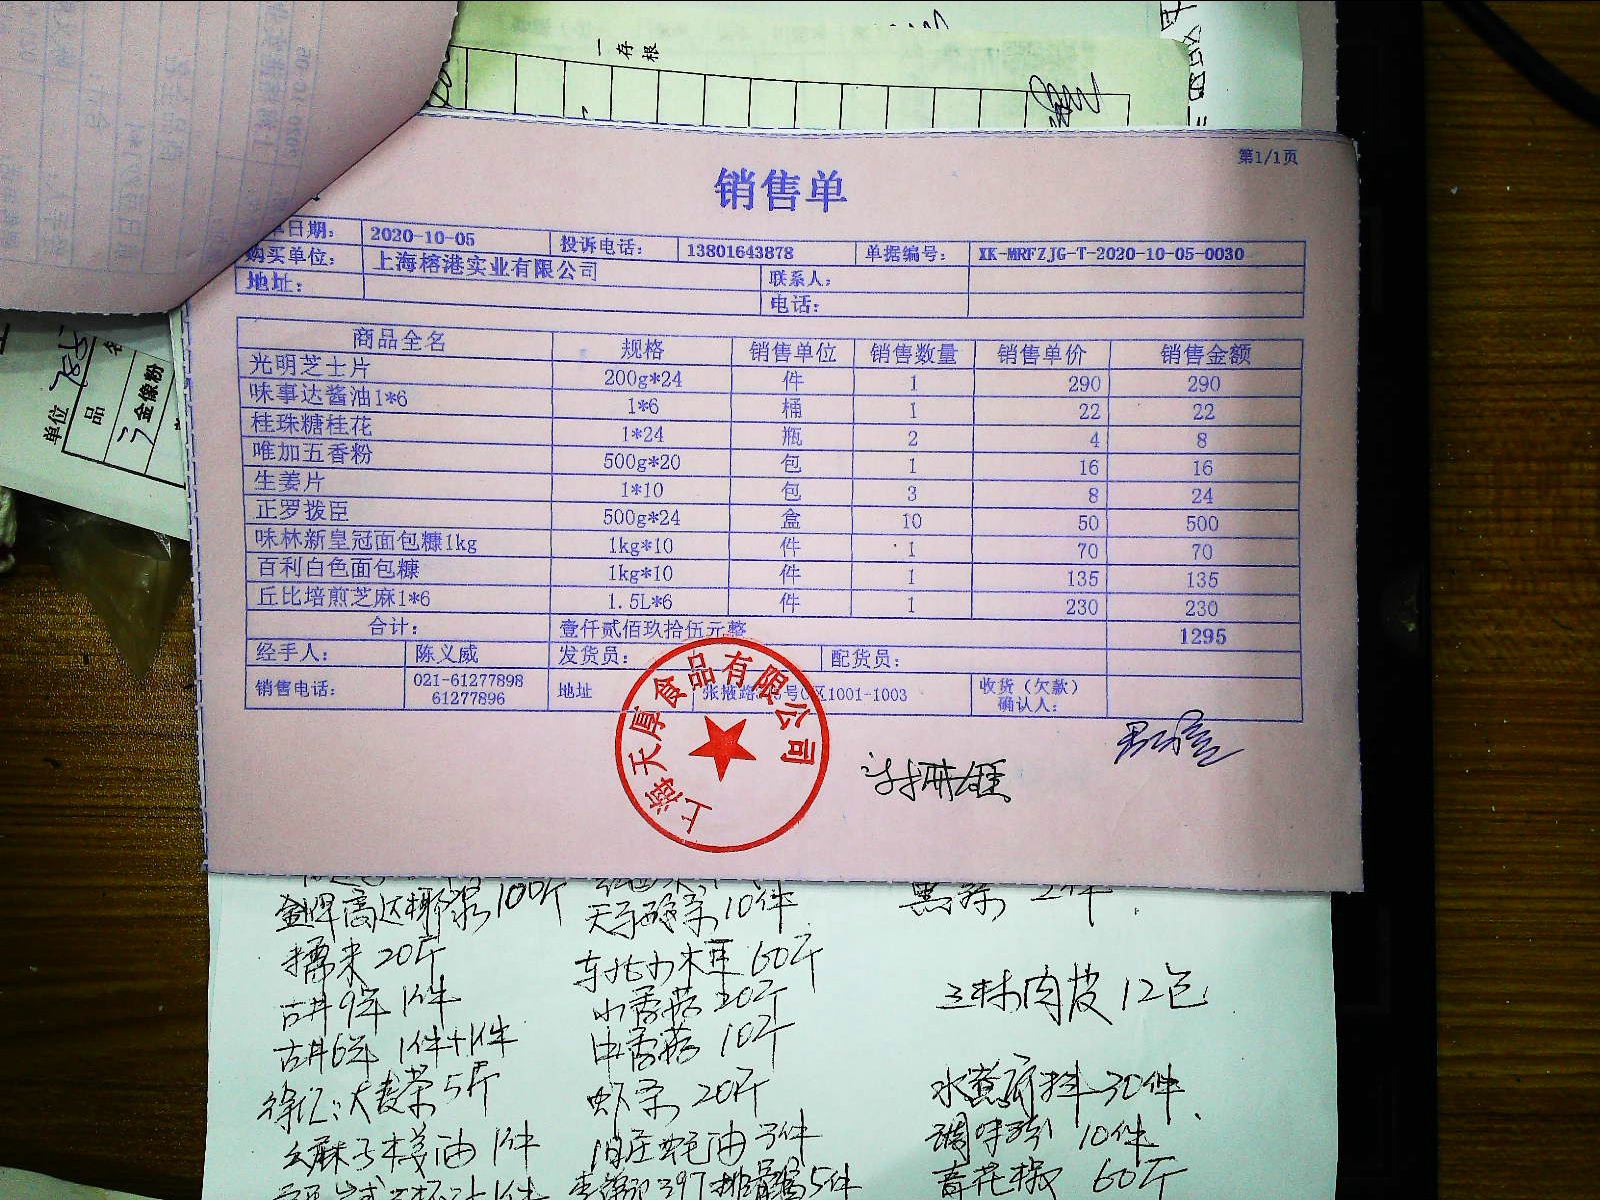 一存根
第1/1页
销售单
日期： 2020-10-05 投诉电话： 13801643878 单据编号： XK-MRFZJG-T-2020-10-05-0030
购买单位： 上海榕港实业有限公司 联系人：
地址： 电话：
商品全名 规格 销售单位 销售数量 销售单价 销售金额
光明芝士片 200g*24 件 1 290 290
味事达酱油1*6 1*6 桶 1 22 22
桂珠糖桂花 1*24 瓶 2 4 8
唯加五香粉 500g*20 包 1 16 16
生姜片 1*10 包 3 8 24
正罗拨臣 500g*24 盒 10 50 500
味林新皇冠面包糠1kg 1kg*10 件 1 70 70
百利白色面包糠 1kg*10 件 1 135 135
丘比培煎芝麻1*6 1.5L*6 件 1 230 230
合计： 壹仟贰佰玖拾伍元整 1295
经手人： 陈义威 发货员： 配货员：
销售电话： 021-61277898 61277896 地址 张掖路 号C区1001-1003 收货（欠款）确认人：
上海天厚食品有限公司
单位
品名
金像粉
100斤 10件
20斤 东北小木耳 60斤
古井9年 1件 小香菇 20斤 三林肉皮 12包
古井6年 1件+1件 中香菇 10斤
大麦茶 5斤 20斤 水煮 30件
油 1件 油 3件 调味 10件
397 5件 青花椒 60斤